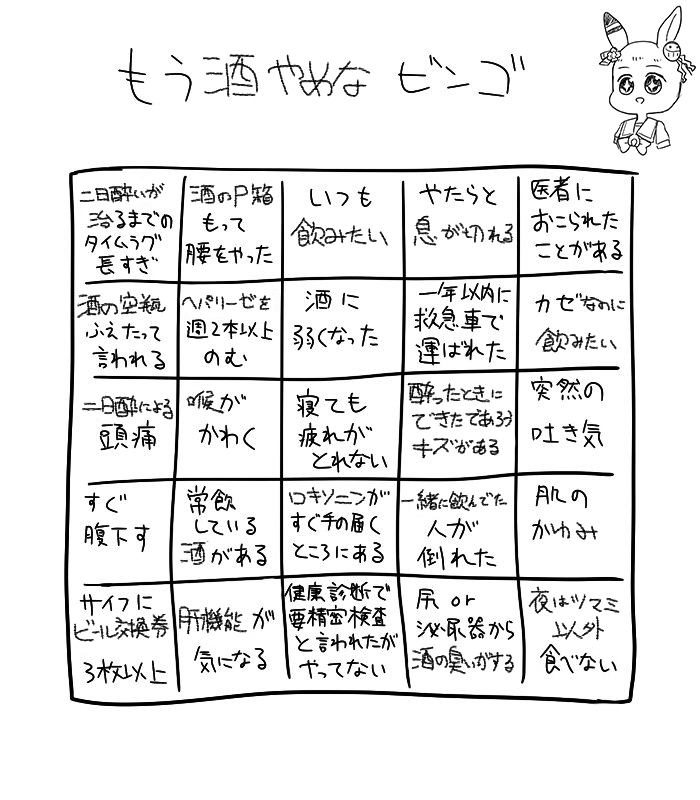 もう酒やめな ビンゴ
二日酔いが
治るまでの
タイムラグ
長すぎ
酒のP箱
もって
腰をやった
いつも
飲みたい
やたらと
息が切れる
医者に
おこられた
ことがある
酒の空瓶
ふえたって
言われる
ヘパリーゼを
週2本以上
のむ
酒に
弱くなった
一年以内に
救急車で
運ばれた
カゼなのに
飲みたい
二日酔による
頭痛
喉が
かわく
寝ても
疲れが
とれない
酔ったときに
できたであろう
キズがある
突然の
吐き気
すぐ
腹下す
常飲
している
酒がある
ロキソニンが
すぐ手の届く
ところにある
一緒に飲んでた
人が
倒れた
肌の
かゆみ
サイフに
ビール交換券
3枚以上
肝機能が
気になる
健康診断で
要精密検査
と言われたが
やってない
尿or
泌尿器から
酒の臭いがする
夜はツマミ
以外
食べない